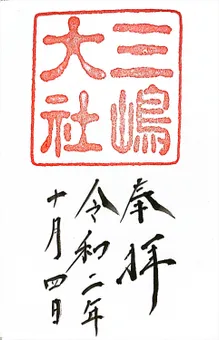 三嶋
大社
奉拝
令和二年
十月四日